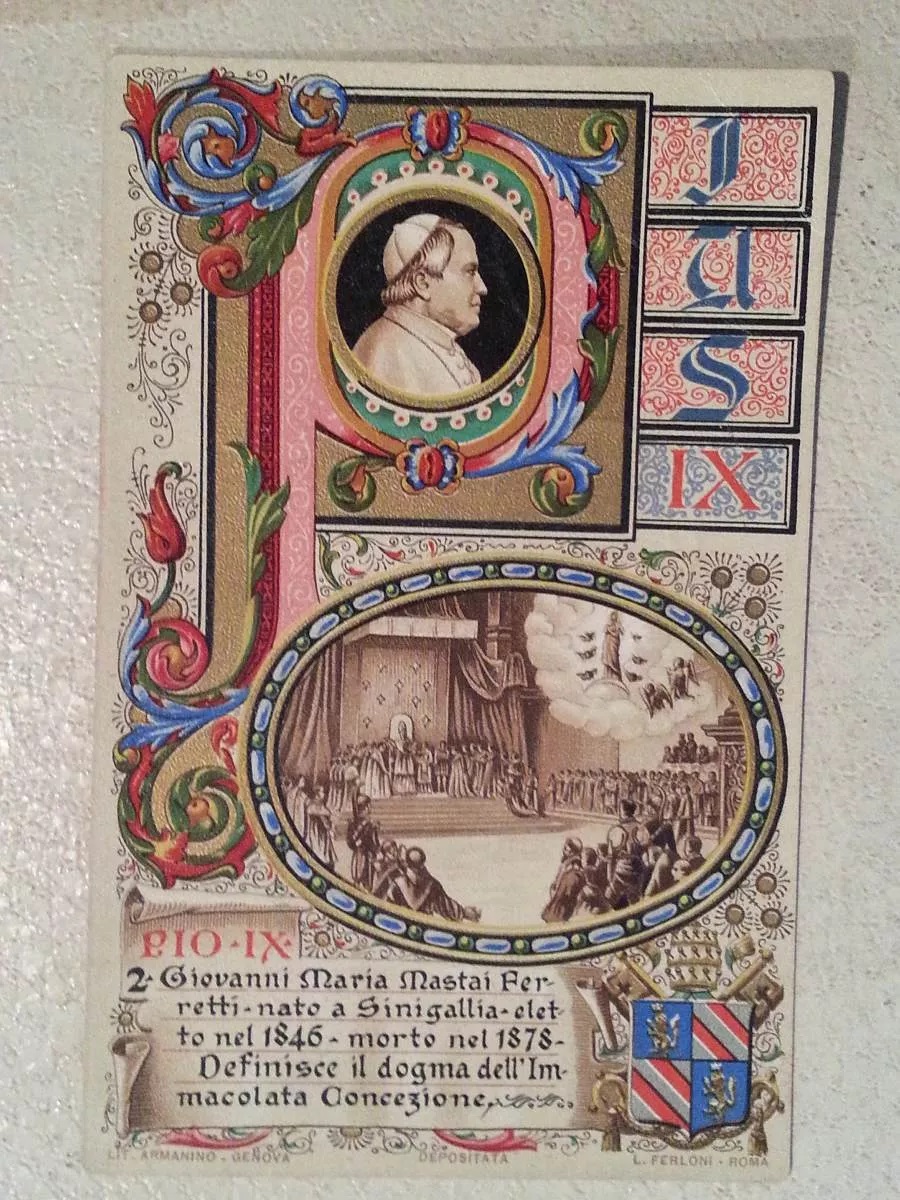 P
I
U
S
IX
PIO·IX·
2· Giovanni Maria Mastai Fer-
retti-nato a Sinigallia-elet-
to nel 1846 - morto nel 1878-
Definisce il dogma dell'Im-
macolata Concezione
LIT. ARMANINO - GENOVA DEPOSITATA L. FERLONI - ROMA